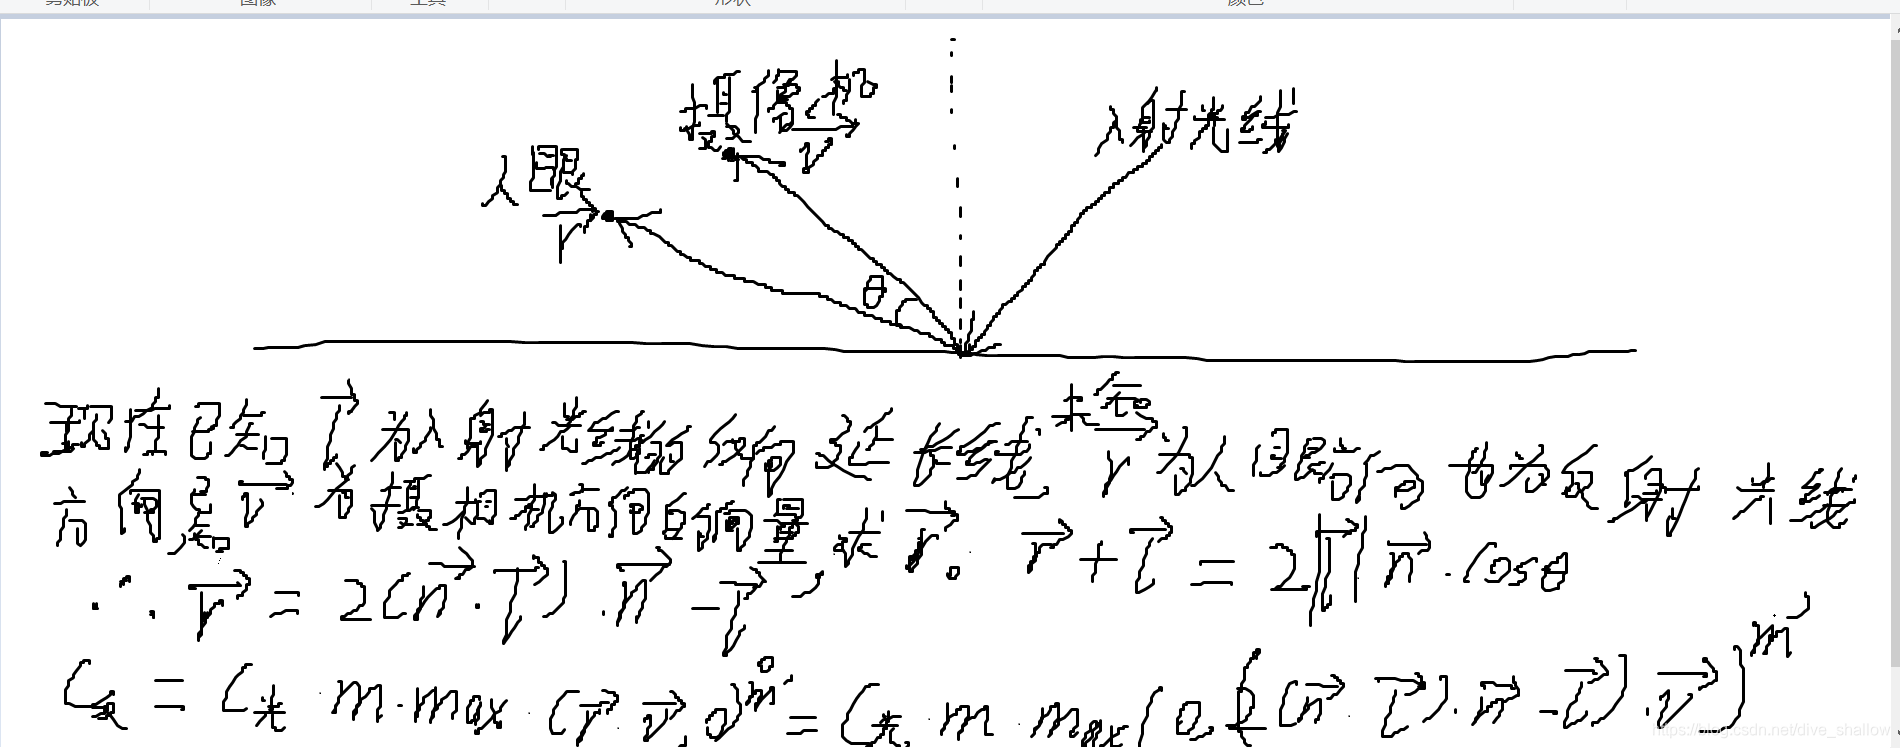 剪贴板 图像 工具 形状 颜色
摄像机
v
入射光线
人眼
r
θ
现在已知 l 为入射光线的反向延长线, 未知 r 为人眼方向也为反射光线
方向, 已知 v 为摄相机方向的向量, 求 r。 r + l = 2|l| n · cosθ
∴ r = 2(n · l) · n - l
C反 = C光 · m · max · (r · v, 0)^m' = C光 · m · max(0, (2(n · l) · n - l) · v)^m'
https://blog.csdn.net/dive_shallow